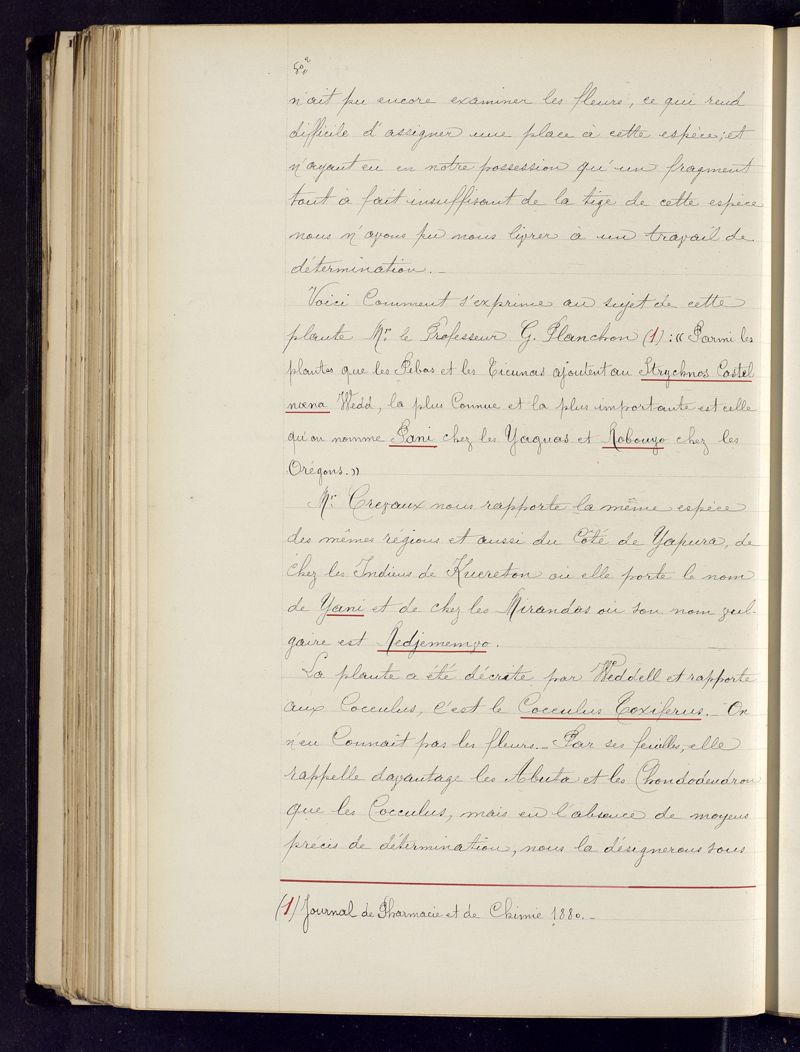 n'ait pu encore examiner les fleurs, ce qui rend
difficile d'assigner une place à cette espèce; et
n'ayant eu en notre possession qu'un fragment
tout à fait insuffisant de la tige de cette espèce
nous n'avons pu nous livrer à un travail de
détermination._
Voici Comment s'exprime au sujet de cette
plante Mr. le Professeur G. Planchon (1) : « Parmi les
plantes que les Pebas et les Ticunas ajoutent au Strychnos Castel
nœna Wedd, la plus Connue et la plus importante est celle
qu'on nomme Pani chez les Yaguas et Roboüyo chez les
Orégons. »
Mr. Crevaux nous rapporte la même espèce
des mêmes régions et aussi du Côté de Yapura, de
chez les Indiens de Kueretou où elle porte le nom
de Yani et de chez les Mirandas où son nom vul-
gaire est Redjememyo.
La plante a été décrite par Weddell et rapporté
aux Cocculus, c'est le Cocculus Toxiferus._ On
n'en Connait pas les fleurs._ Par ses feuilles, elle
rappelle davantage les Abuta et les Chondodendron
que les Cocculus, mais en l'absence de moyens
précis de détermination, nous la désignerons sous
(1) Journal de Pharmacie et de Chimie 1880._